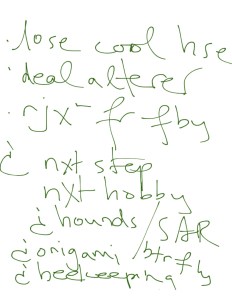 · lose cool hse
· deal alterer
· rjx- fr fby
¿ nxt step
nxt hobby
¿ hounds / SAR
¿ origami / btrfly
¿ beekeeping